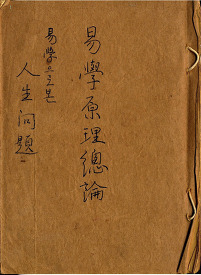 易學原理總論
易學立玉著
人生問題